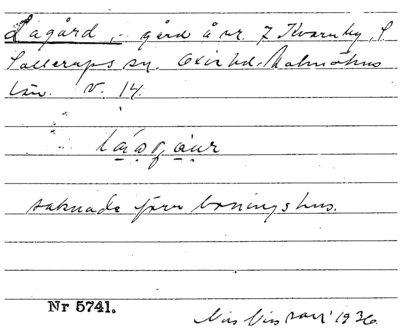 Lagård, - gård å nr. 7 Kvarnby, S.
Sallerups sn. Oxie hd. Malmöhus
län. V. 14.
saknade förr boningshus.
Nr 5741.
1936